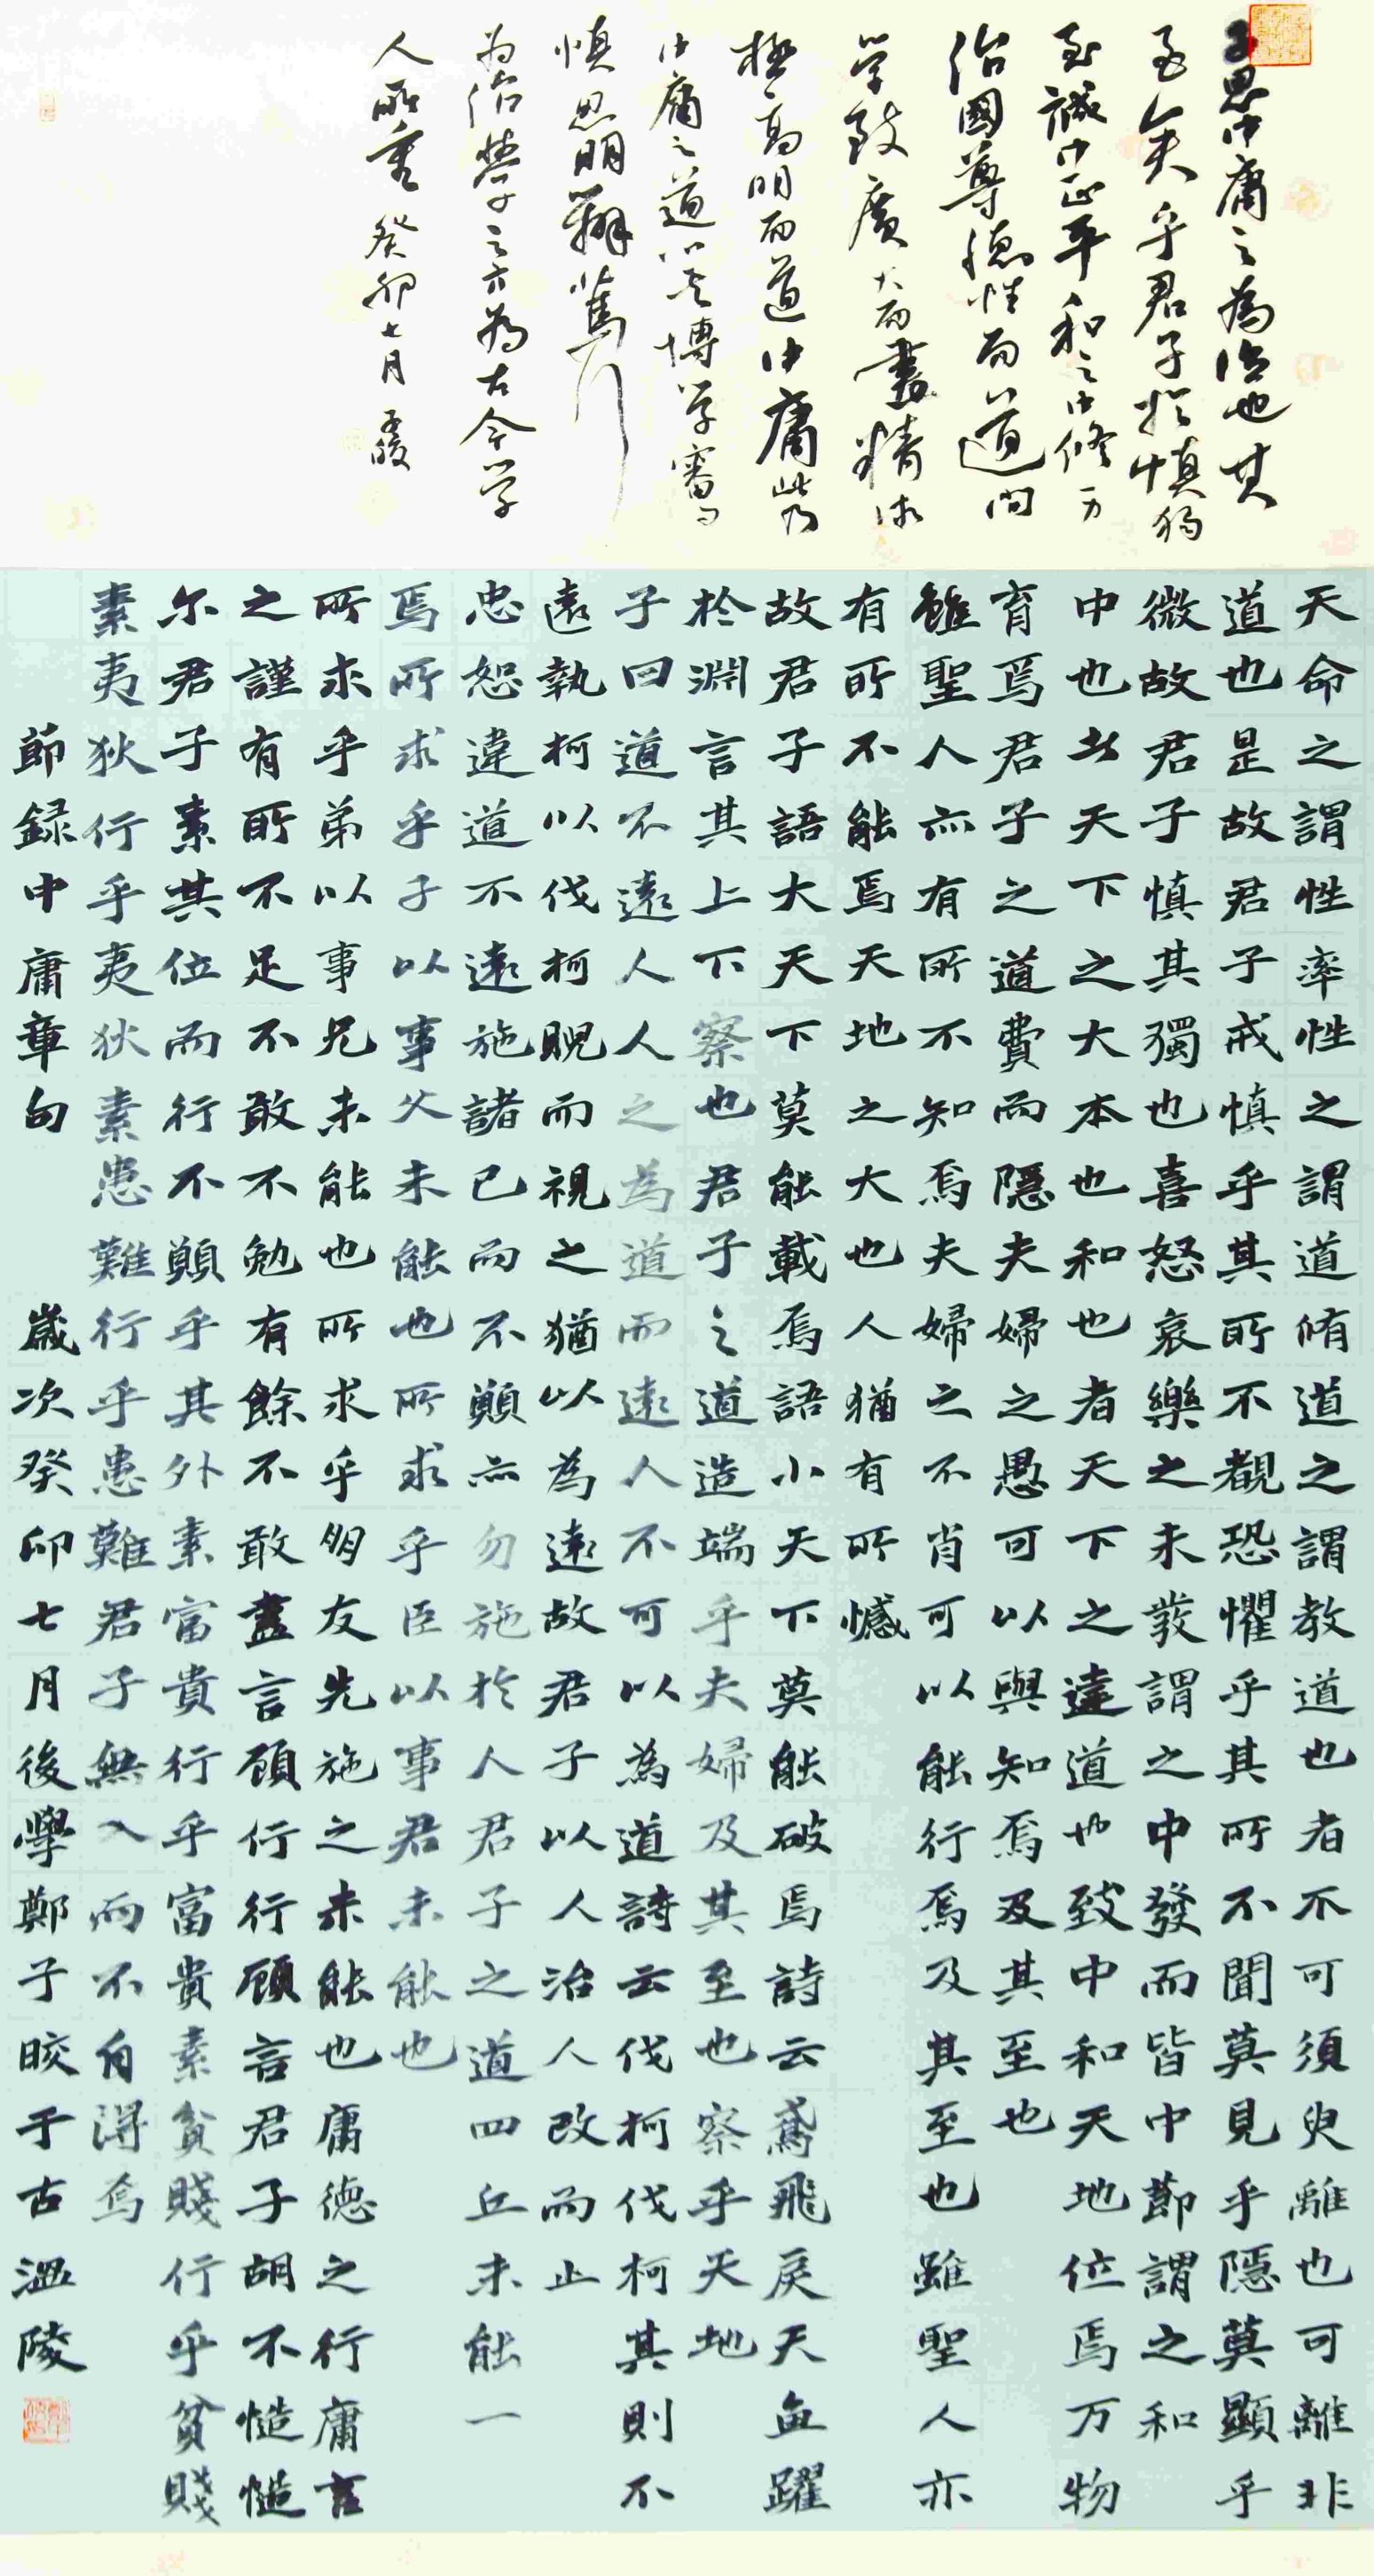 子思中庸之為德也其
至矣乎君子於慎独
至誠中正平和之中修身
治國尊德性而道问
学致廣大而盡精微
極高明而道中庸此乃
中庸之道以其博学審问
慎思明辨篤行
为治學之方為古今学
人所重 癸卯七月 子晈
天命之謂性率性之謂道脩道之謂教道也者不可須臾離也可離非
道也是故君子戒慎乎其所不覩恐懼乎其所不聞莫見乎隱莫顯乎
微故君子慎其獨也喜怒哀樂之未發謂之中發而皆中節謂之和
中也者天下之大本也和也者天下之達道也致中和天地位焉万物
育焉君子之道費而隱夫婦之愚可以與知焉及其至也
雖聖人亦有所不知焉夫婦之不肖可以能行焉及其至也雖聖人亦
有所不能焉天地之大也人猶有所憾
故君子語大天下莫能載焉語小天下莫能破焉詩云鳶飛戾天魚躍
於淵言其上下察也君子之道造端乎夫婦及其至也察乎天地
子曰道不遠人人之為道而遠人不可以為道詩云伐柯伐柯其則不
遠執柯以伐柯睨而視之猶以為遠故君子以人治人改而止
忠恕違道不遠施諸己而不願亦勿施於人君子之道四丘未能一
焉所求乎子以事父未能也所求乎臣以事君未能也
所求乎弟以事兄未能也所求乎朋友先施之未能也庸德之行庸言
之謹有所不足不敢不勉有餘不敢盡言顧行行顧言君子胡不慥慥
尔君子素其位而行不願乎其外素富貴行乎富貴素貧賤行乎貧賤
素夷狄行乎夷狄素患難行乎患難君子無入而不自得焉
節録中庸章句 歲次癸卯七月後學鄭子晈于古溫陵